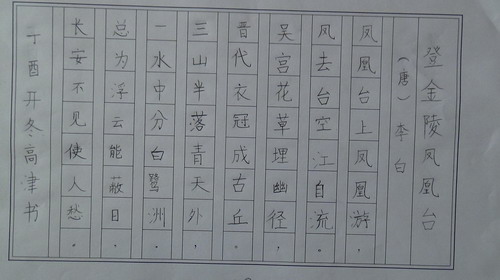 登金陵凤凰台
（唐）李白
凤凰台上凤凰游，
凤去台空江自流。
吴宫花草埋幽径，
晋代衣冠成古丘。
三山半落青天外，
一水中分白鹭洲。
总为浮云能蔽日，
长安不见使人愁。
丁酉开冬高津书